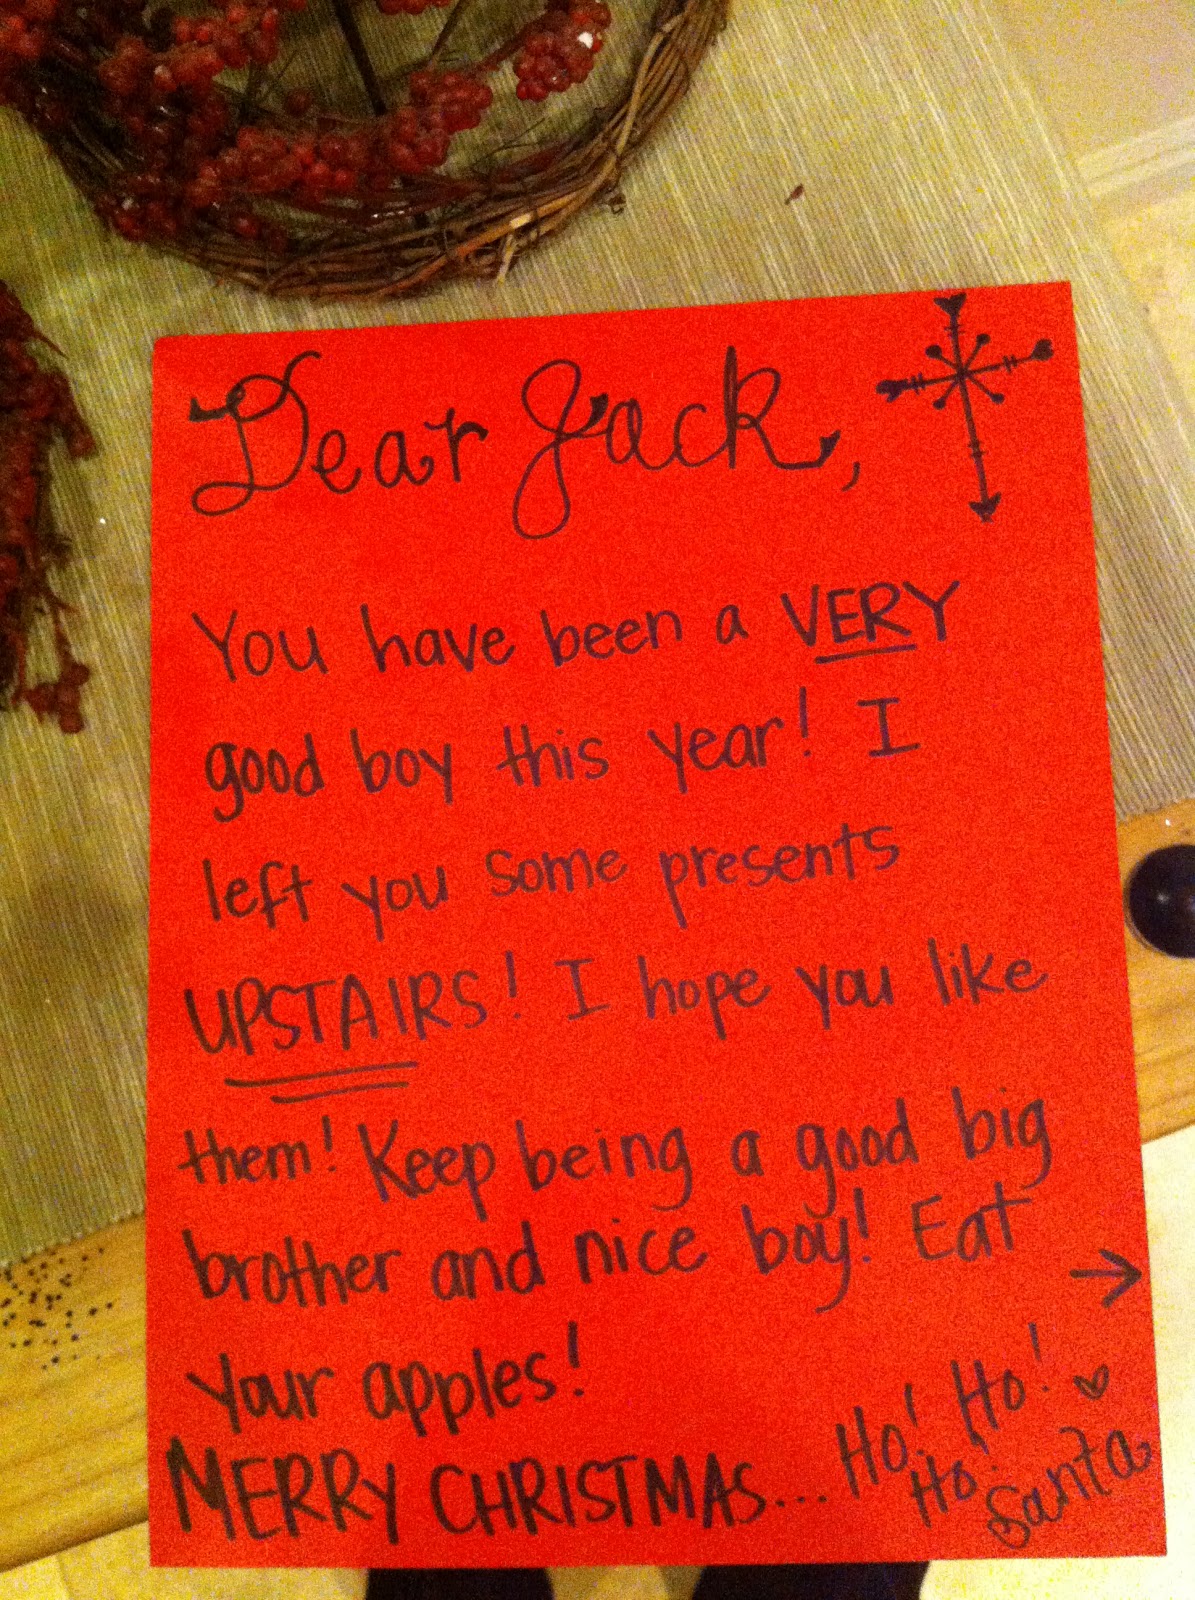 Dear Jack,
You have been a VERY
good boy this year! I
left you some presents
UPSTAIRS! I hope you like
them! Keep being a good big
brother and nice boy! Eat →
your apples!
MERRY CHRISTMAS... Ho! Ho!
Ho! ♡
Santa